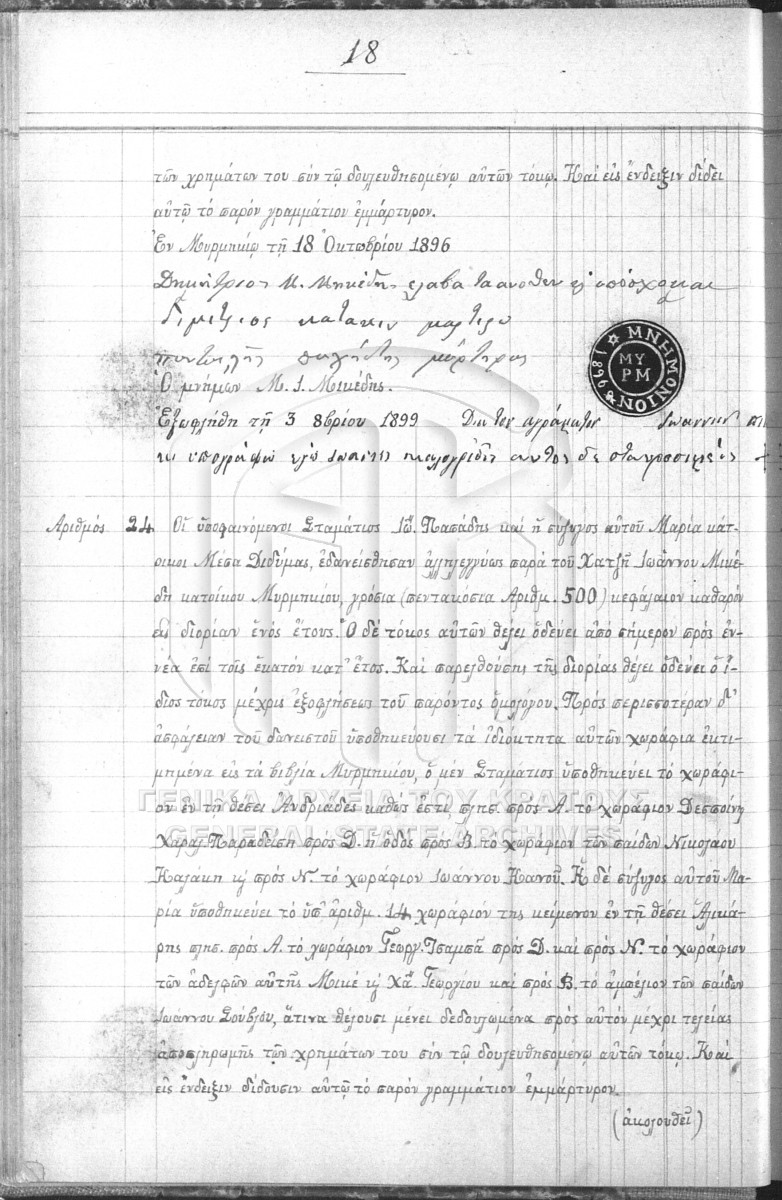 18
τῶν χρημάτων του σύν τῷ δουλευθησομένῳ αὐτῶν τόκῳ. Καί εἰς ἔνδειξιν δίδει
αὐτῷ τό παρόν γραμμάτιον ἐμμάρτυρον.
Ἐν Μυρμηκίῳ τῇ 18 Ὀκτωβρίου 1896
Δημήτριος Μ. Μηκέδης ελαβα τα ανοθεν κ' υπόσχομαι
διμιτριος μαρτιρω
παντελής μάρτηρας
Ὁ μνήμων Μ. Ι. Μικέδης.
ΜΝΗΜΟΝΙΟΝ
1896
ΜΥ
ΡΜ
Ἐξωφλήθη τῇ 3 8βρίου 1899 Δια τον αγράματον Ιωαννην
υπογράφω εγώ
Ἀριθμός 24 Οἱ ὑποφαινόμενοι Σταμάτιος Ἰω. Παπάδης καί ἡ σύζυγος αὐτοῦ Μαρία κάτ-
οικοι Μέσα Διδύμας, ἐδανείσθησαν ἀλληλεγγύως παρά τοῦ Χατζῆ Ἰωάννου Μικέ-
δη κατοίκου Μυρμηκίου, γρόσια (πεντακόσια Ἀριθμ. 500) κεφάλαιον καθαρόν
εἰς διορίαν ἑνός ἔτους. Ὁ δέ τόκος αὐτῶν θέλει ὁδεύει ἀπό σήμερον πρός ἐν-
νέα ἐπί τοῖς ἑκατόν κατ' ἔτος. Καί παρελθούσης τῆς διορίας θέλει ὁδεύει ὁ ἴ-
διος τόκος μέχρις ἐξοφλήσεως τοῦ παρόντος ὁμολόγου. Πρός περισσοτέραν δ'
ἀσφάλειαν τοῦ δανειστοῦ ὑποθηκεύουσι τά ἰδιόκτητα αὐτῶν χωράφια ἐκτι-
μημένα εἰς τά βιβλία Μυρμηκίου, ὁ μέν Σταμάτιος ὑποθηκεύει τό χωράφι-
ον ἐν τῇ θέσει Ἀνδριάδες καθώς ἐστί πλησ. πρός Α. τό χωράφιον Δεσποίνη
Χαραλ. Παραδείση πρός Δ. ἡ ὁδός πρός Β. τό χωράφιον τῶν παίδων Νικολάου
Καλάκη κ' πρός Ν. τό χωράφιον Ἰωάννου Κανοῦ. Ἡ δέ σύζυγος αὐτοῦ Μα-
ρία ὑποθηκεύει τό ὑπ' ἀριθμ. 14 χωράφιόν της κείμενον ἐν τῇ θέσει Ἀλικά-
ρης πλησ. πρός Α. τό χωράφιον Γεωργ. Τσαμπᾶ πρός Δ. καί πρός Ν. τό χωράφιον
τῶν ἀδελφῶν αὐτῆς Μικέ κ' Χά. Γεωργίου καί πρός Β. τό ἀμπέλιον τῶν παίδων
Ἰωάννου Σούβλου, ἅτινα θέλουσι μένει δεδουλωμένα πρός αὐτόν μέχρι τελείας
ἀποπληρωμῆς τῶν χρημάτων του σύν τῷ δουλευθησομένῳ αὐτῶν τόκῳ. Καί
εἰς ἔνδειξιν δίδουσιν αὐτῷ τό παρόν γραμμάτιον ἐμμάρτυρον.
(ἀκολουθεῖ)
ΓΕΝΙΚΑ ΑΡΧΕΙΑ ΤΟΥ ΚΡΑΤΟΥΣ
GENERAL STATE ARCHIVES